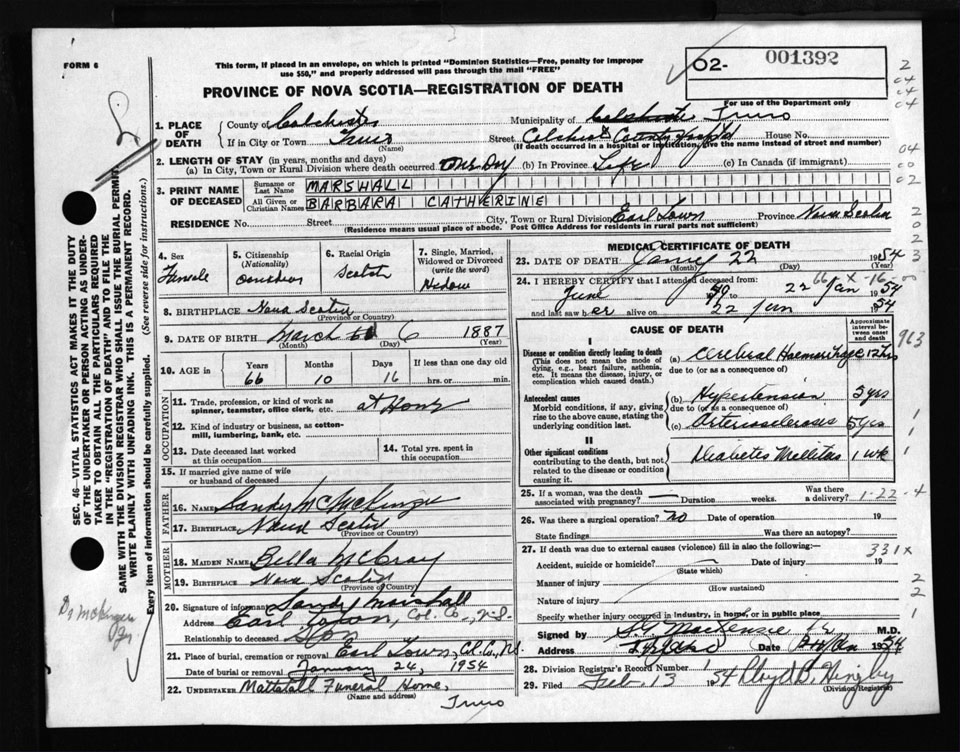 FORM 6
This form, if placed in an envelope, on which is printed "Dominion Statistics—Free, penalty for improper
use $50," and properly addressed will pass through the mail "FREE"
O2- 001392
PROVINCE OF NOVA SCOTIA—REGISTRATION OF DEATH
For use of the Department only
1. PLACE OF DEATH
County of Colchester Municipality of Colchester Truro
If in City or Town Truro Street Colchester County Hospital House No.
(Name) (If death occurred in a hospital or institution, give the name instead of street and number)
2. LENGTH OF STAY (in years, months and days)
(a) In City, Town or Rural Division where death occurred One Day (b) In Province Life (c) In Canada (if immigrant)
3. PRINT NAME OF DECEASED
Surname or Last Name MARSHALL
All Given or Christian Names BARBARA CATHERINE
RESIDENCE No. Street City, Town or Rural Division Earl Town Province Nova Scotia
(Residence means usual place of abode. Post Office Address for residents in rural parts not sufficient)
4. Sex Female
5. Citizenship (Nationality) Canadian
6. Racial Origin Scotch
7. Single, Married, Widowed or Divorced (write the word) Widow
8. BIRTHPLACE Nova Scotia
(Province or Country)
9. DATE OF BIRTH March 6 1887
(Month) (Day) (Year)
10. AGE in Years 66 Months 10 Days 16 If less than one day old hrs. or min.
OCCUPATION
11. Trade, profession, or kind of work as spinner, teamster, office clerk, etc. at Home
12. Kind of industry or business, as cotton-mill, lumbering, bank, etc.
13. Date deceased last worked at this occupation
14. Total yrs. spent in this occupation
15. If married give name of wife or husband of deceased
FATHER
16. Name Sandy
17. Birthplace Nova Scotia
(Province or Country)
MOTHER
18. MAIDEN NAME Bella
19. BIRTHPLACE Nova Scotia
(Province or Country)
20. Signature of informant Sandy Marshall
Address Earl Town, Col. Co., N.S.
Relationship to deceased Son
21. Place of burial, cremation or removal Earl Town, Col. Co., N.S.
Date of burial or removal January 24, 1954
22. UNDERTAKER Mattatall Funeral Home,
(Name and address)
Truro
MEDICAL CERTIFICATE OF DEATH
23. DATE OF DEATH 22 1954
(Month) (Day) (Year)
24. I HEREBY CERTIFY that I attended deceased from:
June 49 to 22 Jan 1954
and last saw her alive on 22 Jan 54
66 X-16-00
CAUSE OF DEATH
Approximate interval between onset and death
I
Disease or condition directly leading to death
(This does not mean the mode of dying, e.g., heart failure, asthenia, etc. It means the disease, injury, or complication which caused death.)
(a) Cerebral Haemorrhage 12 hrs
due to (or as a consequence of)
Antecedent causes
Morbid conditions, if any, giving rise to the above cause, stating the underlying condition last.
(b) Hypertension 5 yrs
due to (or as a consequence of)
(c) Arteriosclerosis 5 yrs
II
Other significant conditions
contributing to the death, but not related to the disease or condition causing it.
Diabetes Mellitus 1 wk
25. If a woman, was the death associated with pregnancy? Duration weeks. Was there a delivery? 1-22-4
26. Was there a surgical operation? no Date of operation 19
State findings Was there an autopsy?
27. If death was due to external causes (violence) fill in also the following:— 331X
Accident, suicide or homicide? Date of injury 19
(State which)
Manner of injury
(How sustained)
Nature of injury
Specify whether injury occurred in industry, in home, or in public place
Signed by MacKenzie M.D.
Address Date 1954
28. Division Registrar's Record Number 1
29. Filed Feb. 13 1954 Lloyd B.
(Division Registrar)
SEC. 46—VITAL STATISTICS ACT MAKES IT THE DUTY
OF THE UNDERTAKER OR PERSON ACTING AS UNDER-
TAKER TO OBTAIN ALL THE PARTICULARS REQUIRED
IN THE "REGISTRATION OF DEATH" AND TO FILE THE
SAME WITH THE DIVISION REGISTRAR WHO SHALL ISSUE THE BURIAL PERMIT.
WRITE PLAINLY WITH UNFADING INK. THIS IS A PERMANENT RECORD.
Every item of information should be carefully supplied. (See reverse side for instructions.)